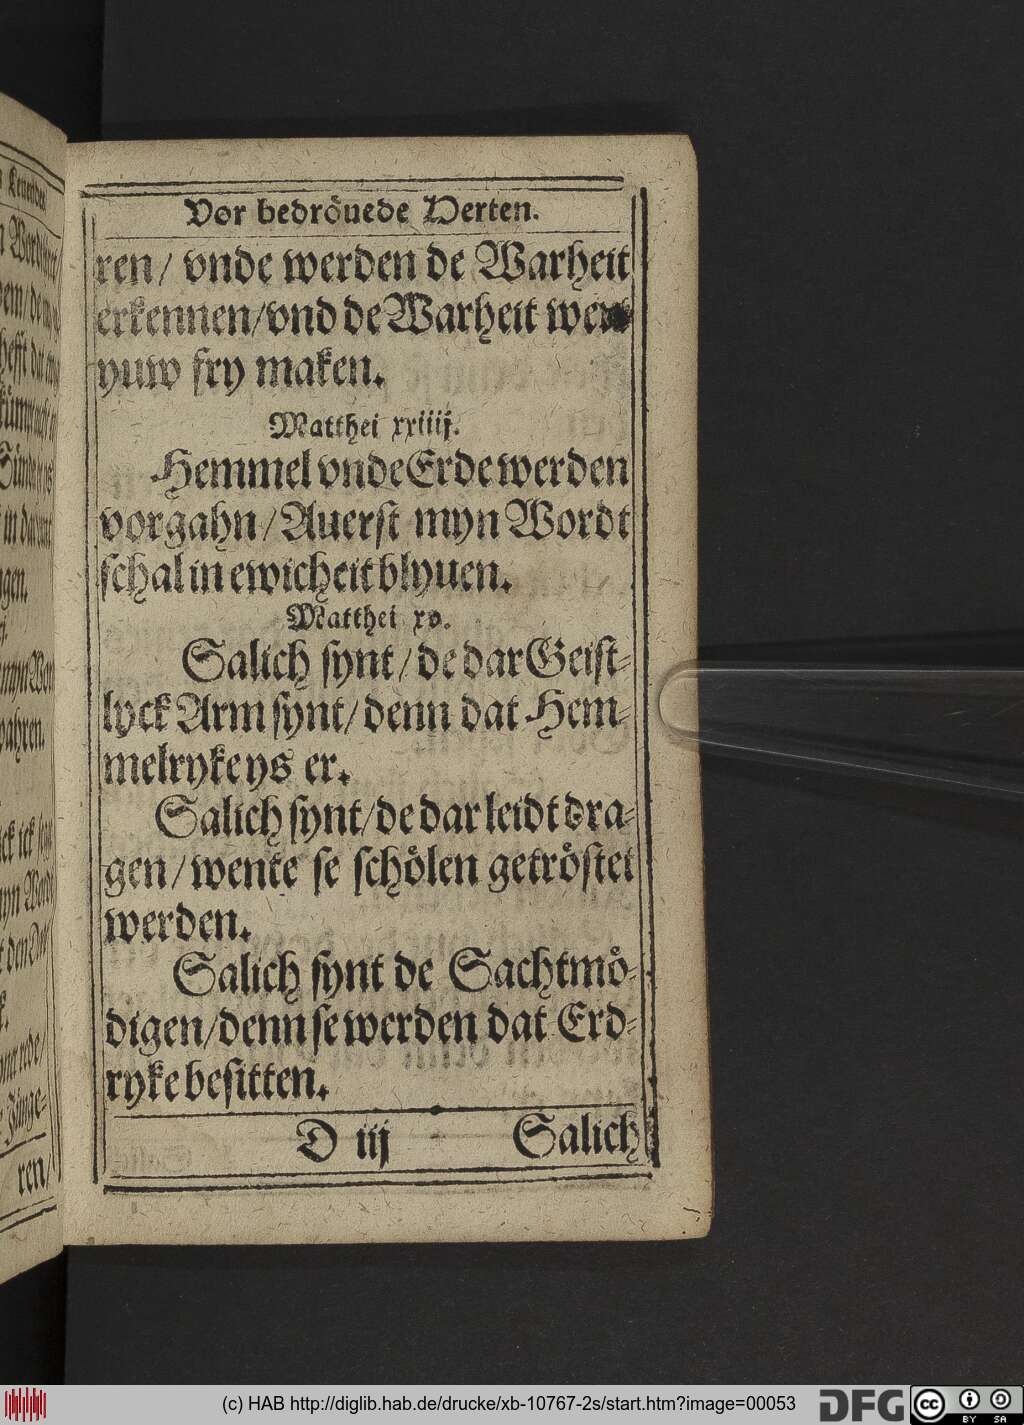 Vor bedröuede Herten.
ren/ vnde werden de Warheit
erkennen/vnd de Warheit wert
yuw fry maken.
Matthei xxiiij.
Hemmel vnde Erde werden
vorgahn/Auerst myn Wordt
schal in ewicheit blyuen.
Matthei xv.
Salich synt/de dar Geist-
lyck Arm synt/denn dat Hem-
melryke ys er.
Salich synt/de dar leidt dra-
gen/wente se schölen getröstet
werden.
Salich synt de Sachtmö-
digen/denn se werden dat Erd-
ryke besitten.
D iij Salich
ren/
(c) HAB http://diglib.hab.de/drucke/xb-10767-2s/start.htm?image=00053
DFG
cc
BY SA